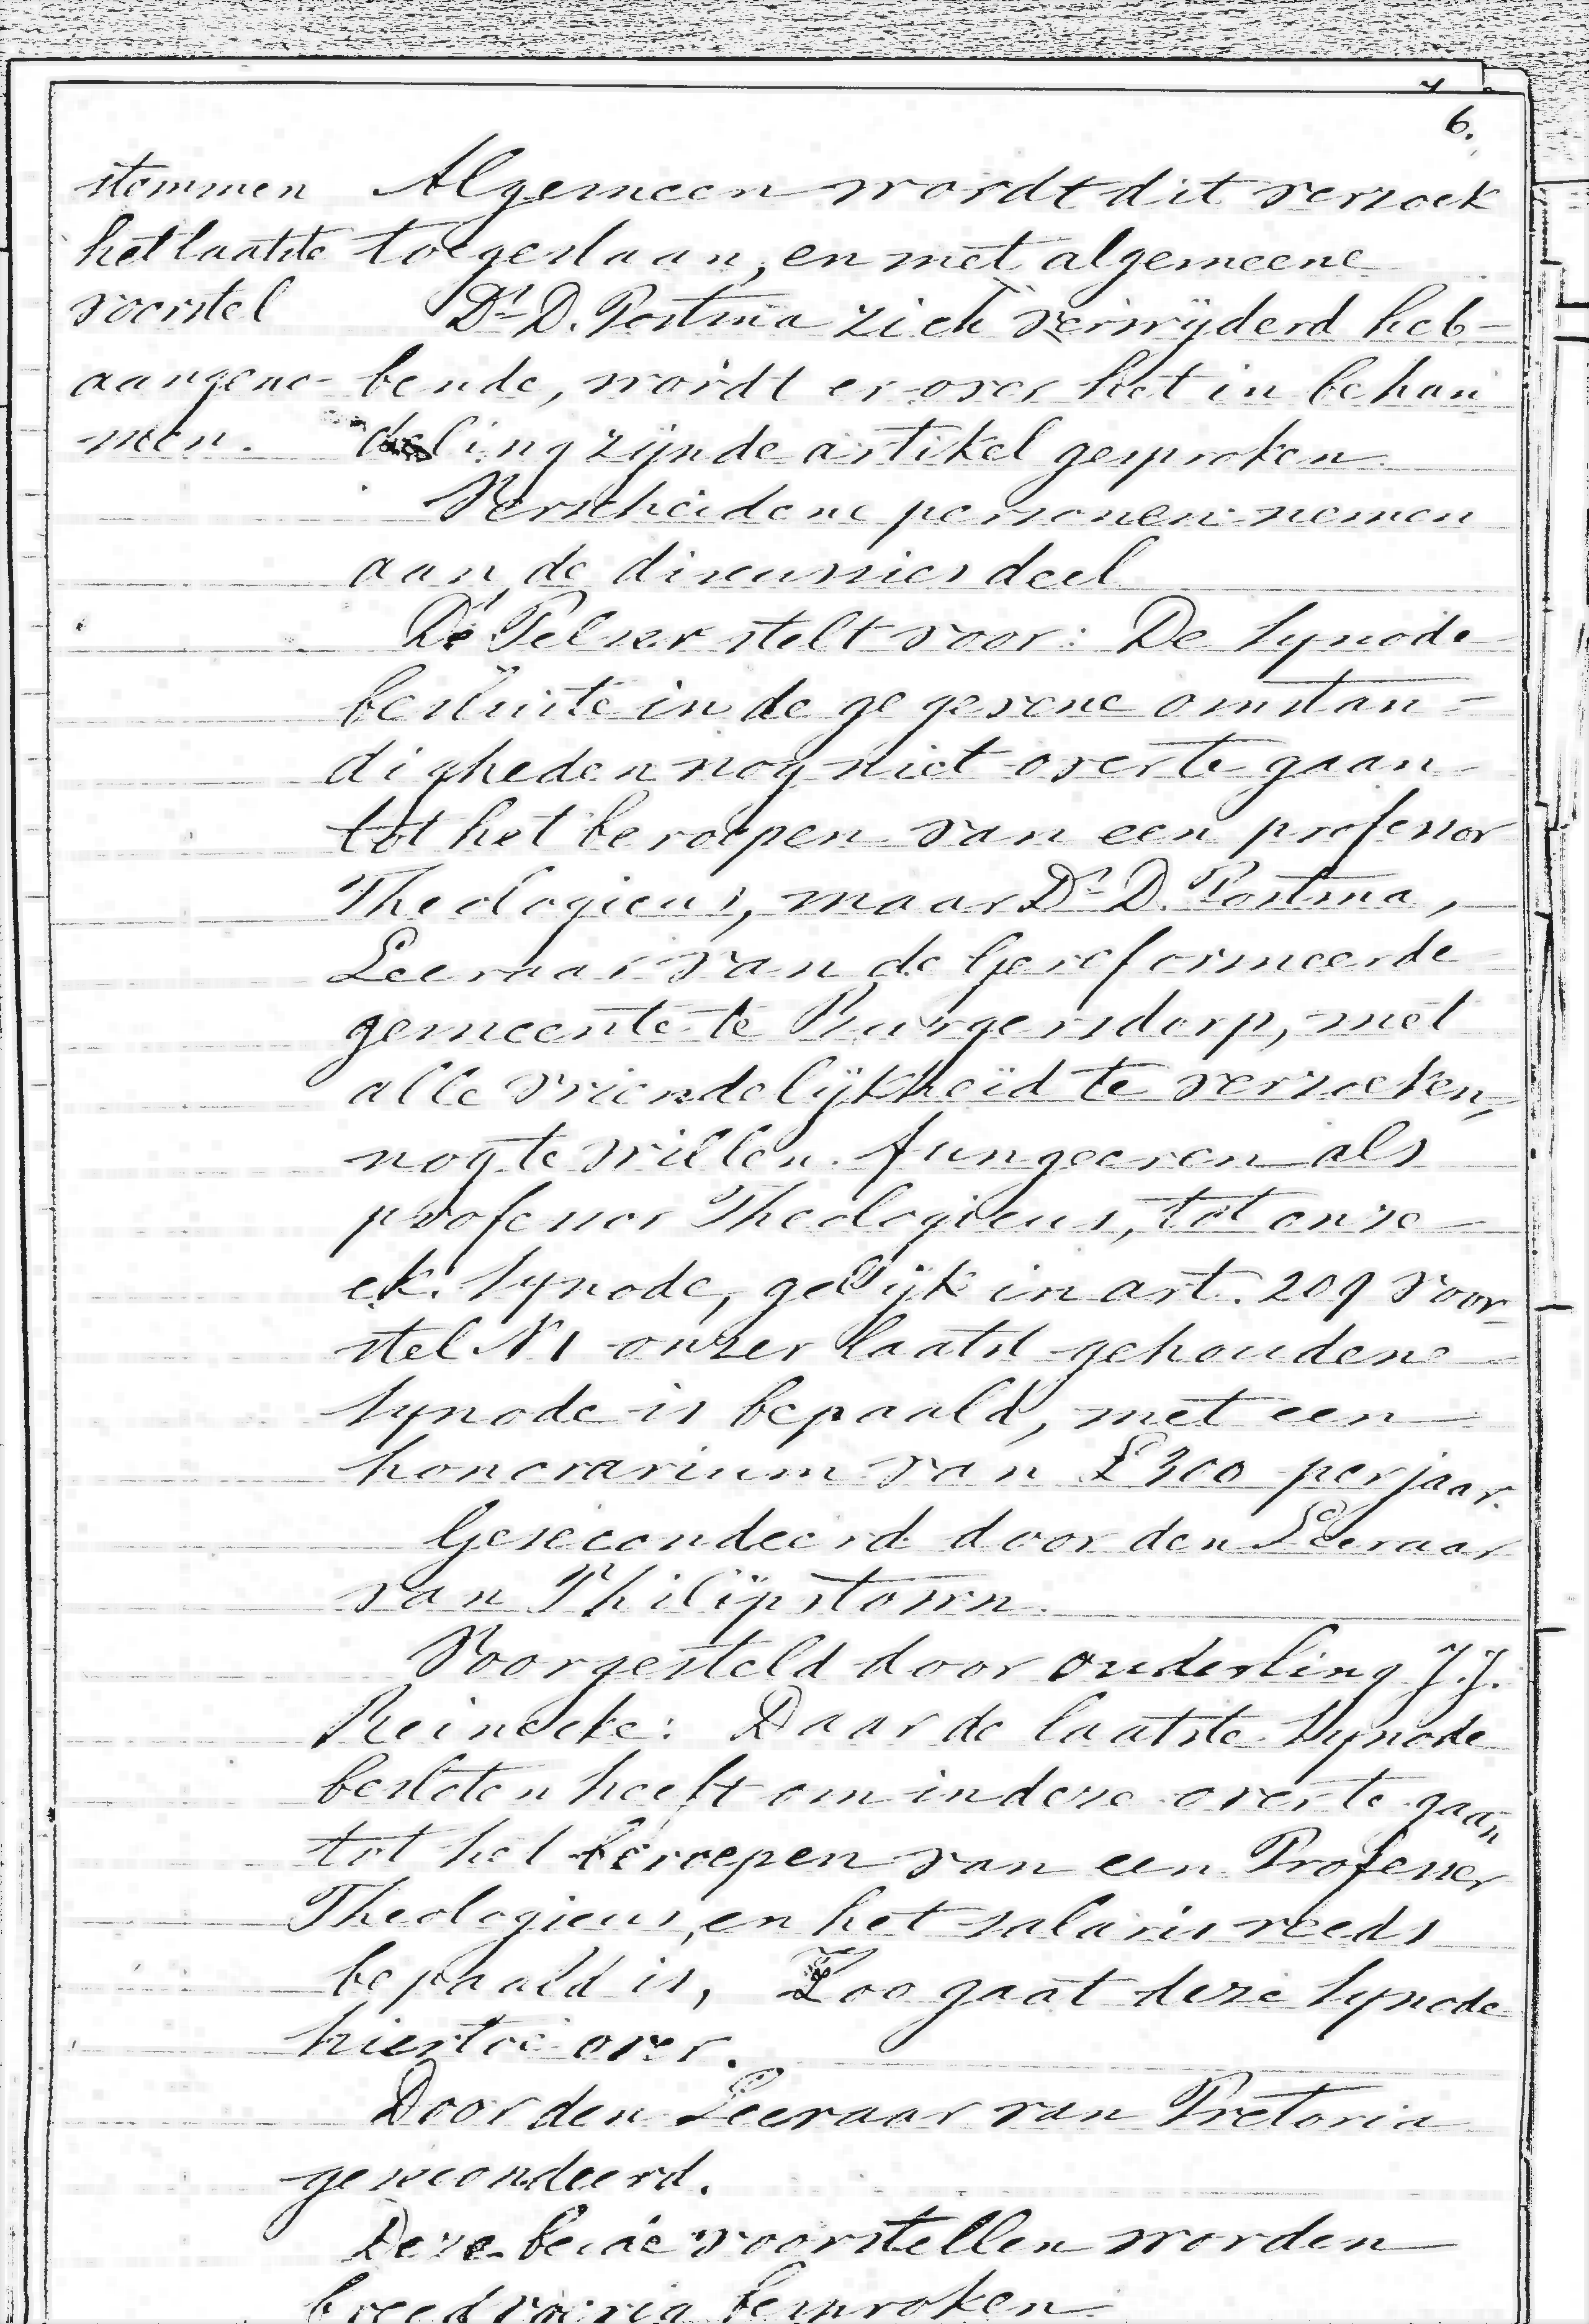 6.
stemmen
het laatste
voorstel
aangeno-
men.
Algemeen wordt dit verzoek
toegestaan, en met algemeene
Ds D. Postma zich verwijderd heb-
bende, wordt er over het in behan
deling zijnde artikel gesproken
Verscheidene personen nemen
aan de discussies deel
Ds Pelser stelt voor: De Synode
besluite in de gegevene omstan-
digheden nog niet over te gaan
tot het beroepen van een professor
Theologicus, maar Ds D. Postma,
Leeraar van de Gereformeerde
gemeente te Burgersdorp, met
alle vriendelijkheid te verzoeken,
nog te willen fungeeren als
professor Theologicus, tot onze
e.k. Synode, gelijk in art. 209 voor-
stel N1 onzer laatst gehoudene
Synode is bepaald, met een
honorarium van £300 per jaar.
Gesecondeerd door den Leeraar
van Philipstown.
Voorgesteld door ouderling J.J.
Reinecke: Daar de laatste Synode
besloten heeft om in deze over te gaan
tot het beroepen van een Professor
Theologicus, en het salaris reeds
bepaald is, Zoo gaat deze Synode
hiertoe over.
Door den Leeraar van Pretoria
gesecondeerd.
Deze beide voorstellen worden
breedvoerig besproken.